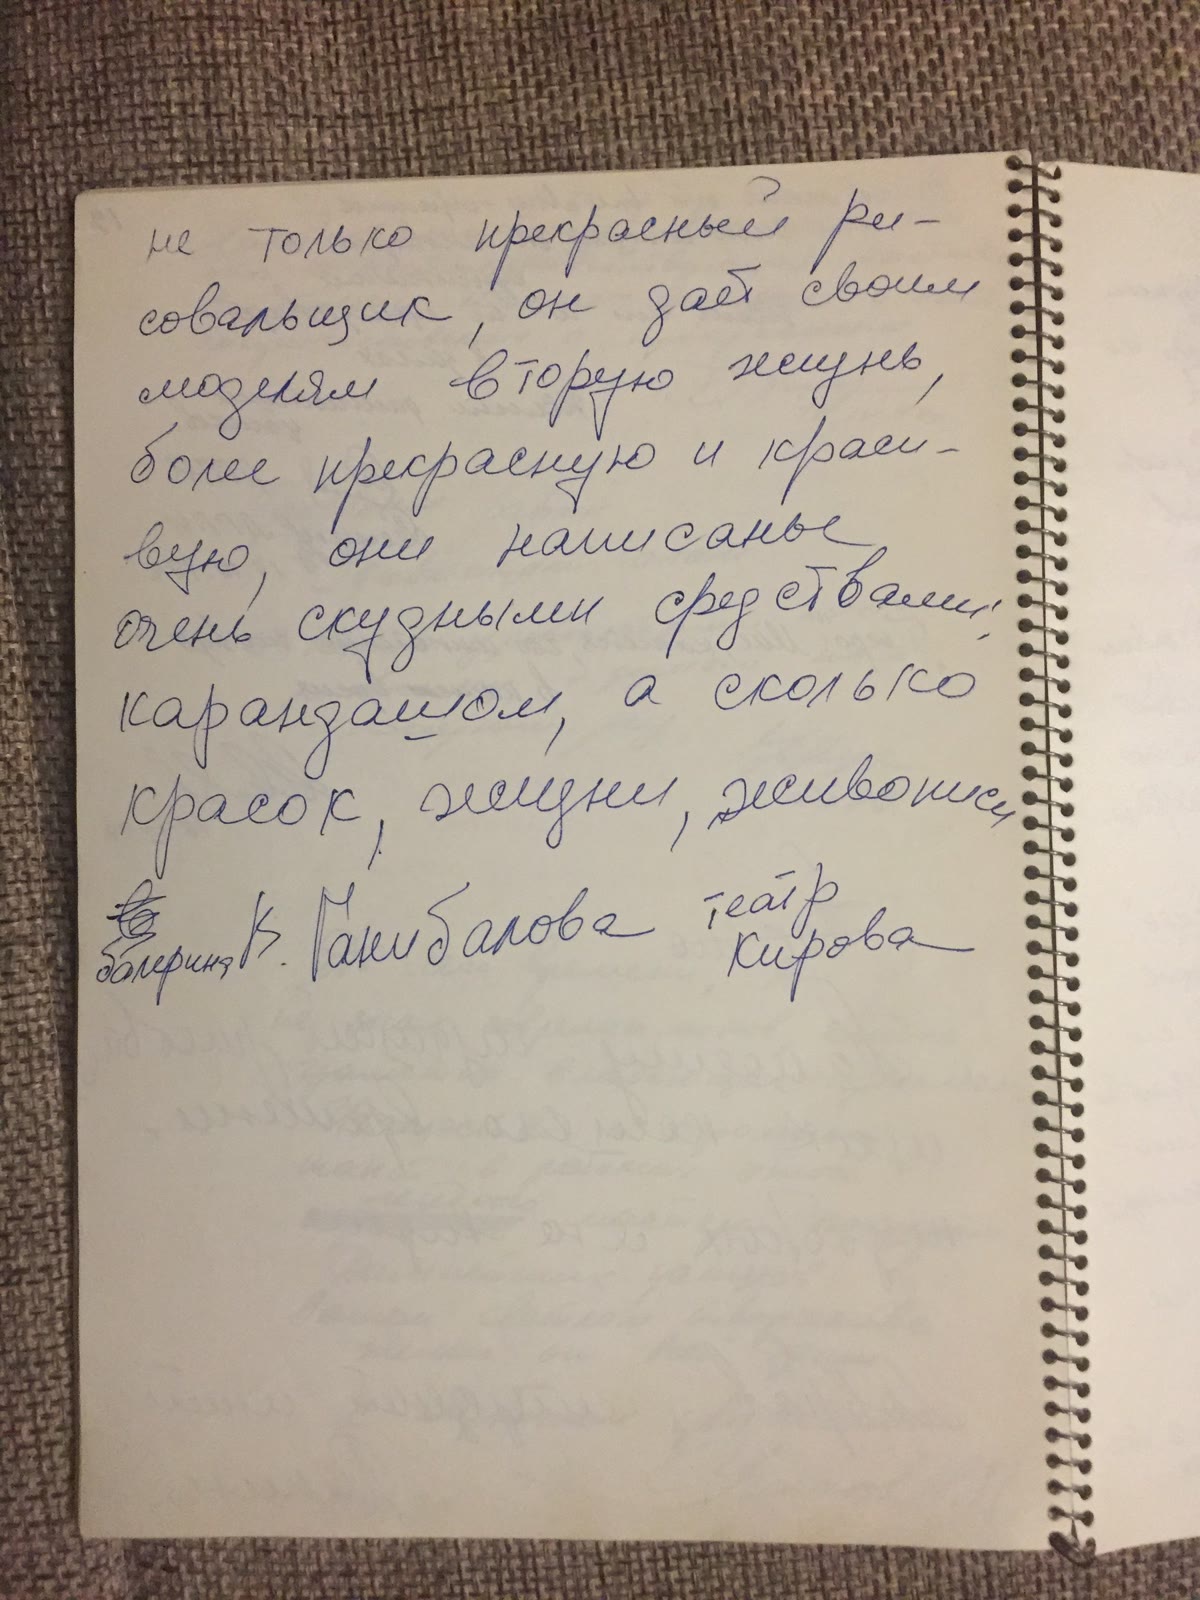 не только прекрасный ри-
совальщик, он даёт своим
моделям вторую жизнь,
более прекрасную и краси-
вую, они написаны
очень скудными средствами,
карандашом, а сколько
красок, жизни, живописи
балерина К. Ганибалова театр
Кирова